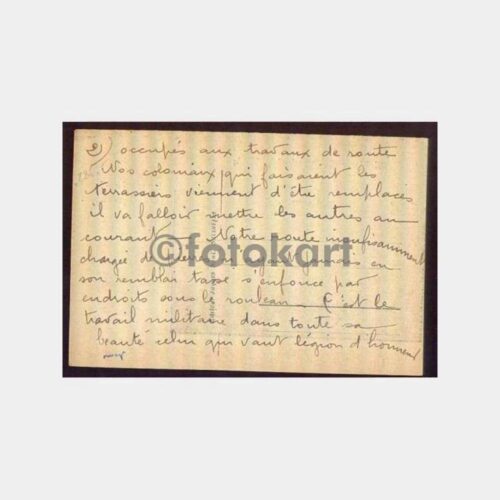 2) occupés aux travaux de route
Nos coloniaux qui faisaient les
terrassiers viennent d'être remplacés
il va falloir mettre les autres au
courant. Notre route insuffisamment
chargée de pierres et ayant mis en
son remblai tasse s'enfonce par
endroits sous le rouleau. C'est le
travail militaire dans toute sa
beauté celui qui vaut légion d'honneur
©fotokart